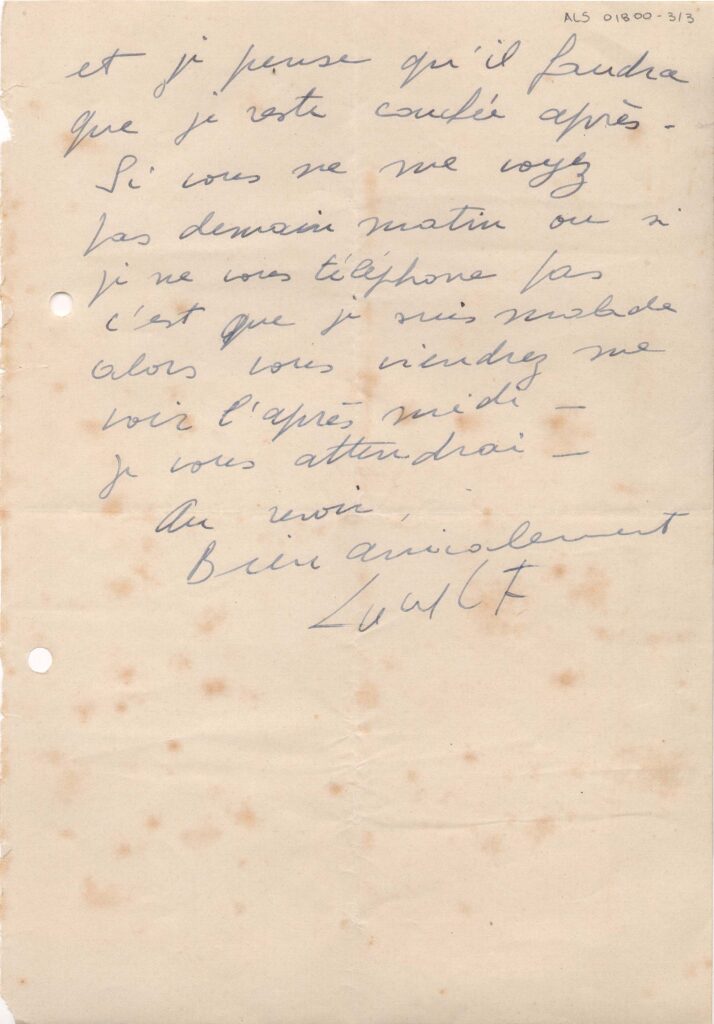 ALS 01800-3/3
et je pense qu'il faudra
que je reste couchée après -
Si vous ne me voyez
pas demain matin ou si
je ne vous téléphone pas
c'est que je suis malade
alors vous viendrez me
voir l'après midi -
je vous attendrai -
Au revoir,
Bien amicalement